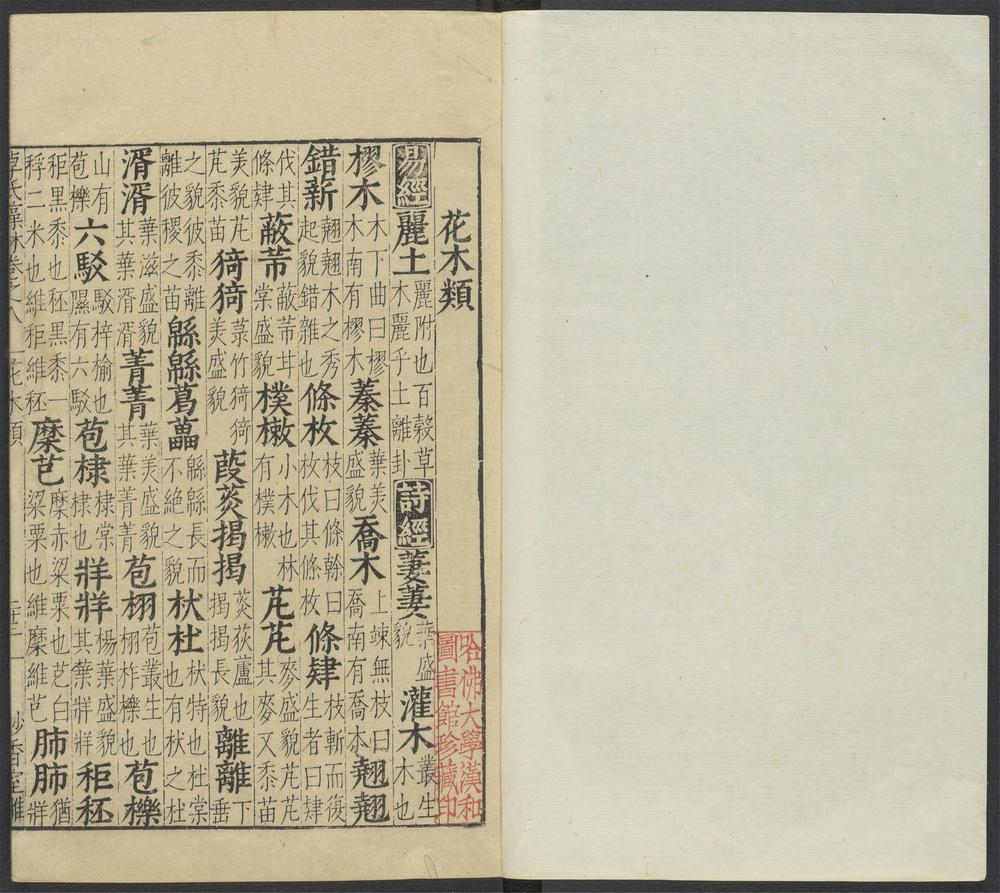 花木類
易經麗土麗附也百穀草木麗乎土離卦詩經萋萋葉盛貌灌木叢生木也
樛木木下曲曰樛木南有樛木蓁蓁葉美盛貌喬木上竦無枝曰喬南有喬木翹翹
錯薪翹翹木之秀起貌錯雜也條枚枝曰條榦曰枚伐其條枚條肄枝斬而復生者曰肄
伐其條肄蔽芾蔽芾甘棠盛貌樸樕小木也林有樸樕芃芃麥盛貌芃芃其麥又黍苗
美貌芃芃黍苗猗猗菉竹猗猗美盛貌葭菼揭揭菼荻蘆也揭揭長貌離離下垂
之貌彼黍離離彼稷之苗緜緜葛藟緜緜長而不絕之貌杕杜杕特也杜棠也有杕之杜
湑湑葉滋盛貌其葉湑湑菁菁葉美盛貌其葉菁菁苞栩苞叢生也栩柞櫟也苞櫟
山有苞櫟六駁駁梓榆也隰有六駁苞棣棣棠棣也牂牂楊葉盛貌其葉牂牂秬秠
秬黑黍也秠黑黍一稃二米也維秬維秠穈芑穈赤粱粟也芑白粱粟也維穈維芑肺肺猶牂
卓氏藻林卷之八
花木類
哈佛大學漢和
圖書館珍藏印